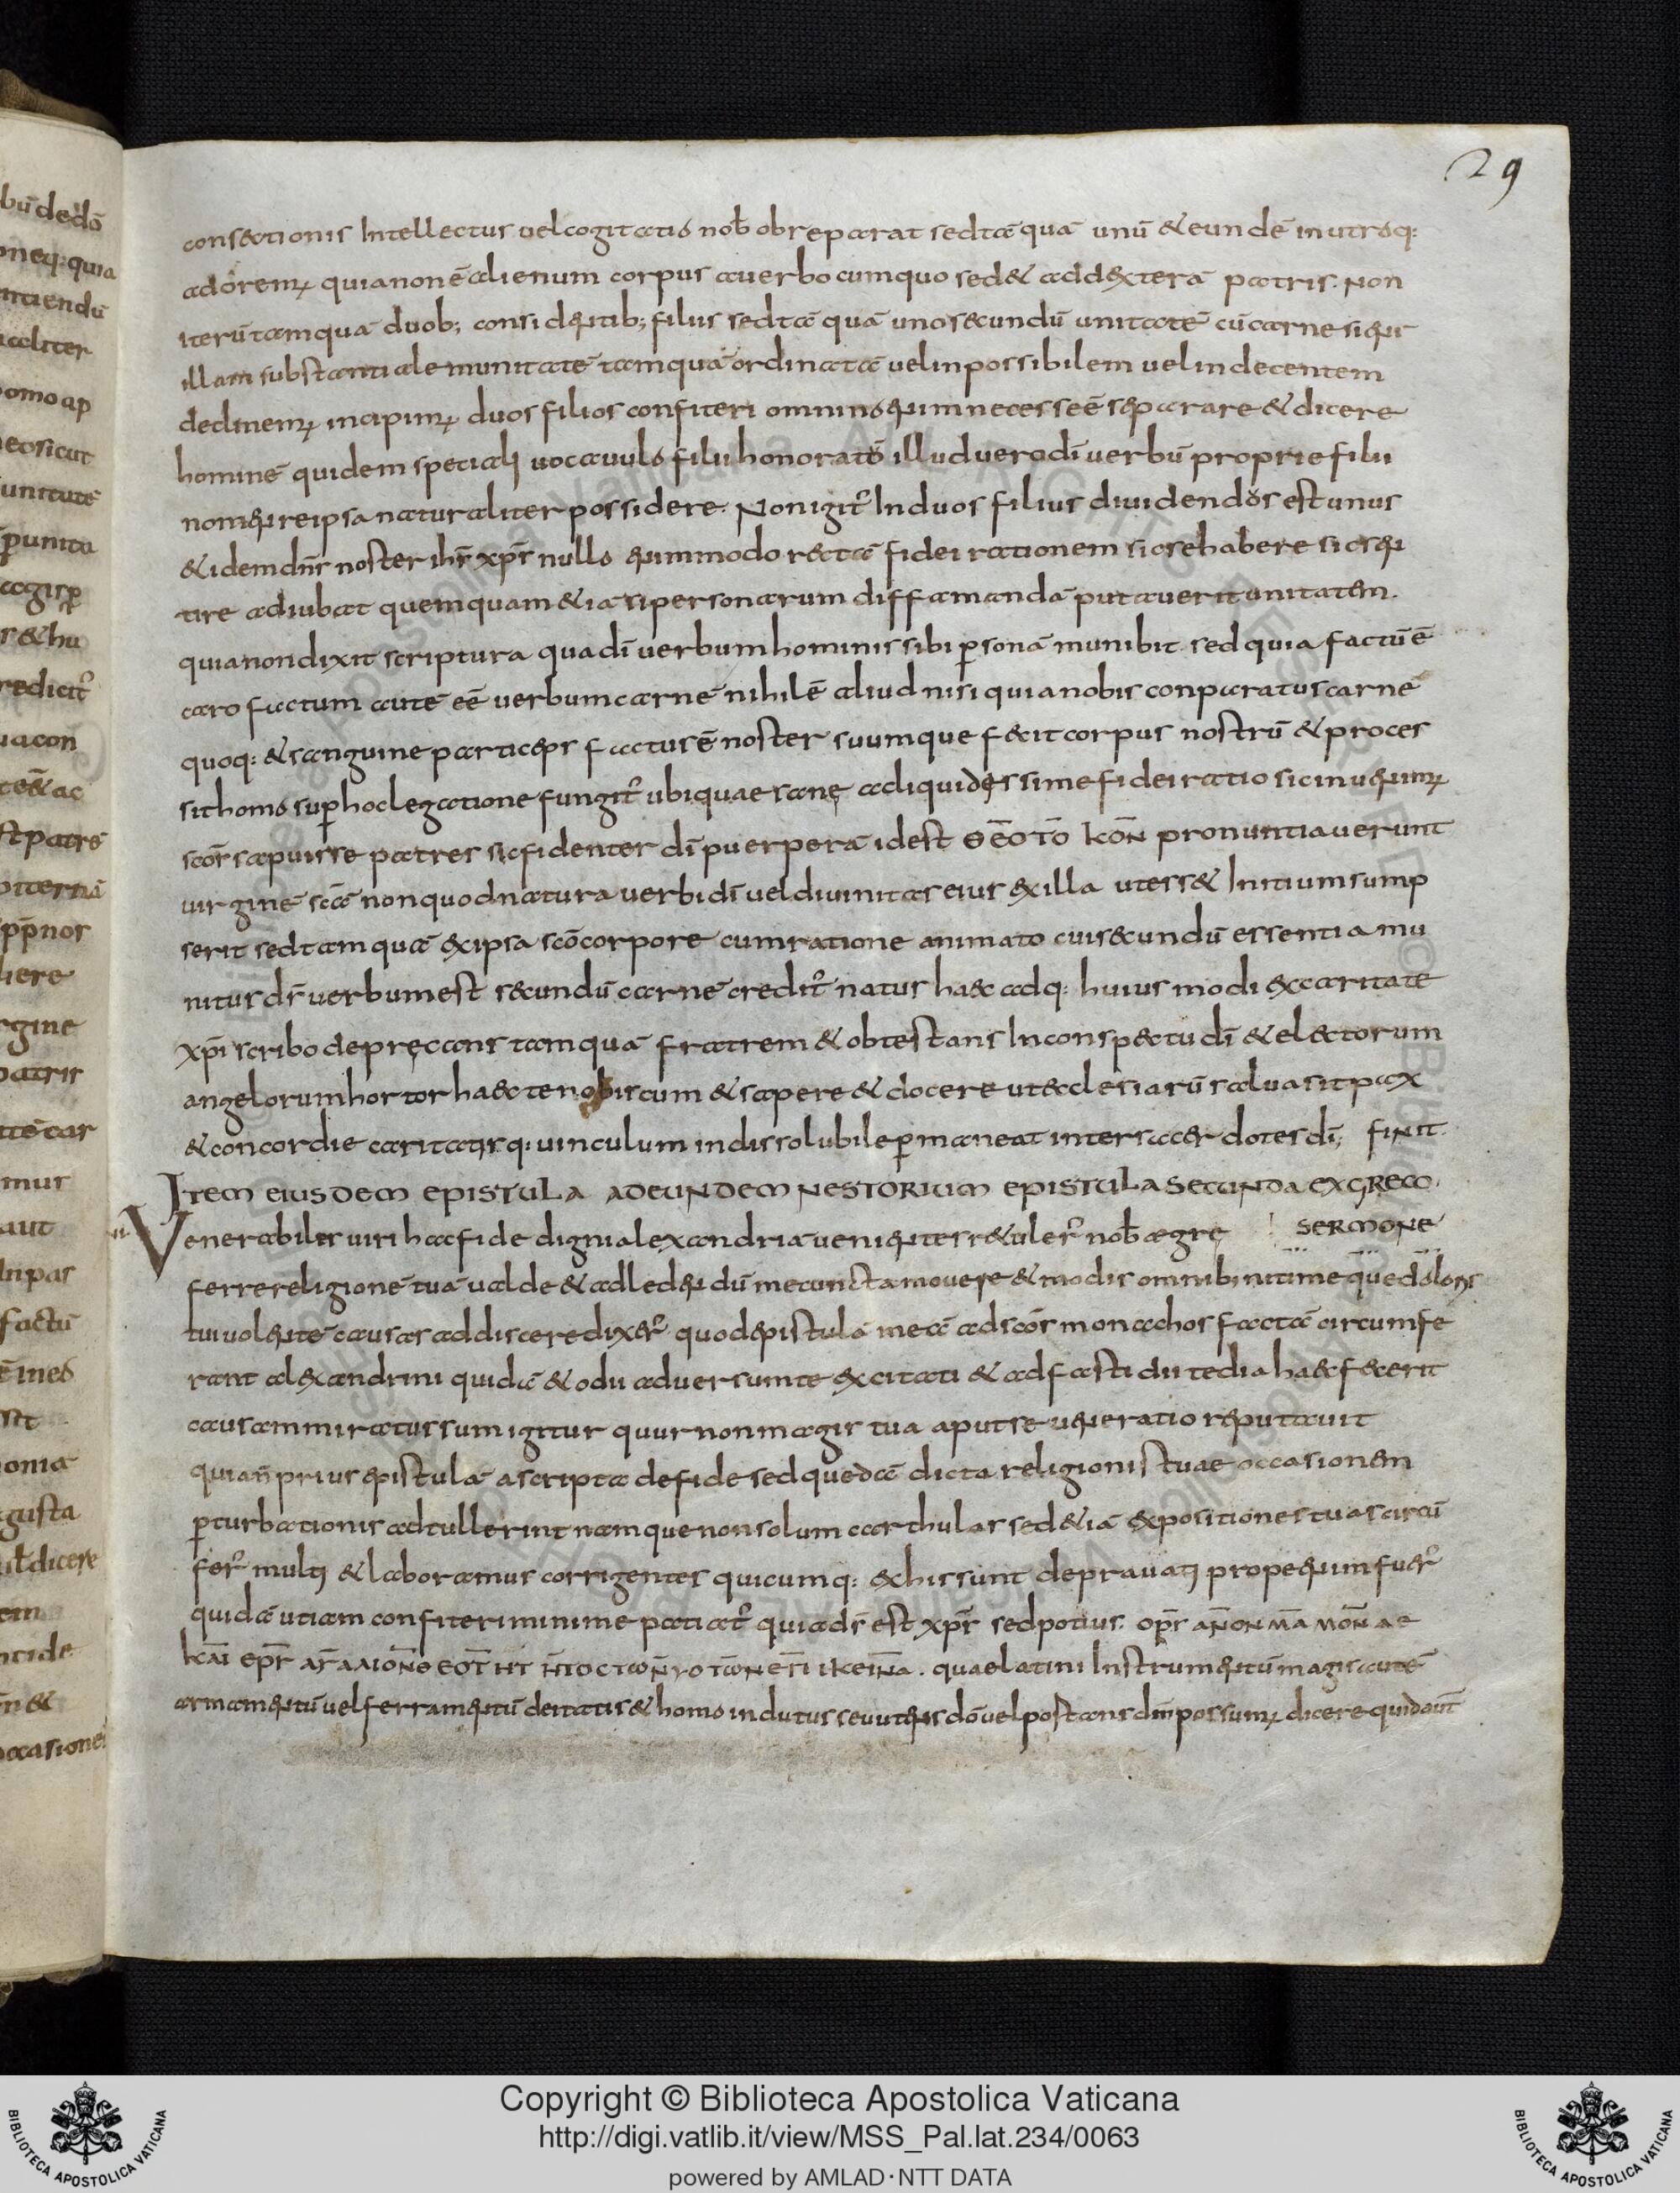 29
consectionis Intellectus uel cogitatio nob̄ obreparat sed tā quā unū & eundē in utroq:
adorem; quia non ē alienum corpus a uerbo cum quo sed & ad dextera patris. Non
iterū tamquā duob; considentib; filius sed tā quā uno secundū unitatē cū carne si enī
illam substantiale munitatē tamquā ordinatā uel inpossibilem uel indecentem
declinem; incipim; duos filios confiteri omnino enim necesse ē separare & dicere
hominē quidem speciali uocauulo filii honoratō illud uero dī uerbū proprie filii
nomen reipsa naturaliter possidere. Non igit̄ In duos filius diuidendos est unus
& idem dn̄s noster ih̄s xp̄s nullo enim modo rectā fidei rationem sic se habere sic sen
tire adiubat quemquam & iā si personarum diffamandā putauerit unitatem.
quia non dixit scriptura qua dī uerbum hominis sibi p̄sonā munibit sed quia factū ē
caro factum autē eē uerbum carnē nihil ē aliud nisi quia nobis conparatus carnē
quoq: & sanguine particeps factus ē noster suumque fecit corpus nostrū & proces
sit homo sup̄ hoc legatione fungit̄ ubi quae sane ad liquidessime fidei ratio sic inuenim;
scōs sapuisse patres sic fidenter dī puerperā id est ΘĒΟΤŌ ΚŌΝ pronuntiauerunt
uirginē scā non quod natura uerbi dī uel diuinitas eius ex illa ut ess& Initium sump
serit sed tamquā ex ipsa scō corpore cum ratione animato cui secundū essentia mu
nitus ds̄ uerbum est secundū carnē credit̄ natus haec adq: huius modi & caritatē
xp̄i scribo deprecans tamquā fratrem & obtestans In conspectu dī & electorum
angelorum hortor haec te nobiscum & sapere & docere ut ecclesiarū salua sit pax
& concordie caritatisq: uinculum indissolubile p̄maneat inter sacerdotes dī; FINIT
ITEM EIUSDEM EPISTULA AD EUNDEM NESTORIUM EPISTULA SECUNDA EX GRECO
Venerabiles uiri hac fide digni alexandria uenientes retuler̄ nob̄ aegre SERMONE
ferre religionē tuā ualde & ad ledendū me cuncta mouere & modis omnib; nitime que dolons
tui uolentē causas addiscere dixer̄ quod epistulā meā ad scōs monachos factā circumfe
rant alexandrini quidā & odii aduersum te excitati & ad fastidii tedia haec fecerit
causam miratus sum igitur quur non magis tua aput se ueneratio reputauit
quia n̄ prius epistulā a scripta de fide sed quedā dicta religionis tuae occasionem
p̄turbationis adtullerint namque non solum carthulas sed & iā expositiones tuas circū
fer̄ multi & laboramus corrigentes quicumq: ex his sunt deprauati prope enim fuer̄
quidā ut iam confiteri minime patiat̄ quia ds̄ est xp̄s sed potius
quae latini Instrumentū magis autē
armamentū uel ferramentū deitatis & homo indutus seu utens dō uel postans dm̄ possum; dicere quid aut̄
Copyright © Biblioteca Apostolica Vaticana
http://digi.vatlib.it/view/MSS_Pal.lat.234/0063
powered by AMLAD·NTT DATA
BIBLIOTECA APOSTOLICA VATICANA
BIBLIOTECA APOSTOLICA VATICANA